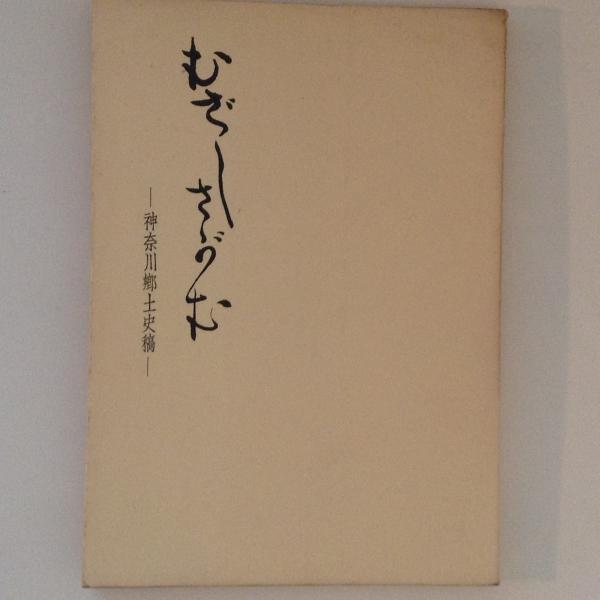 むざしさがむ
―神奈川郷土史稿―